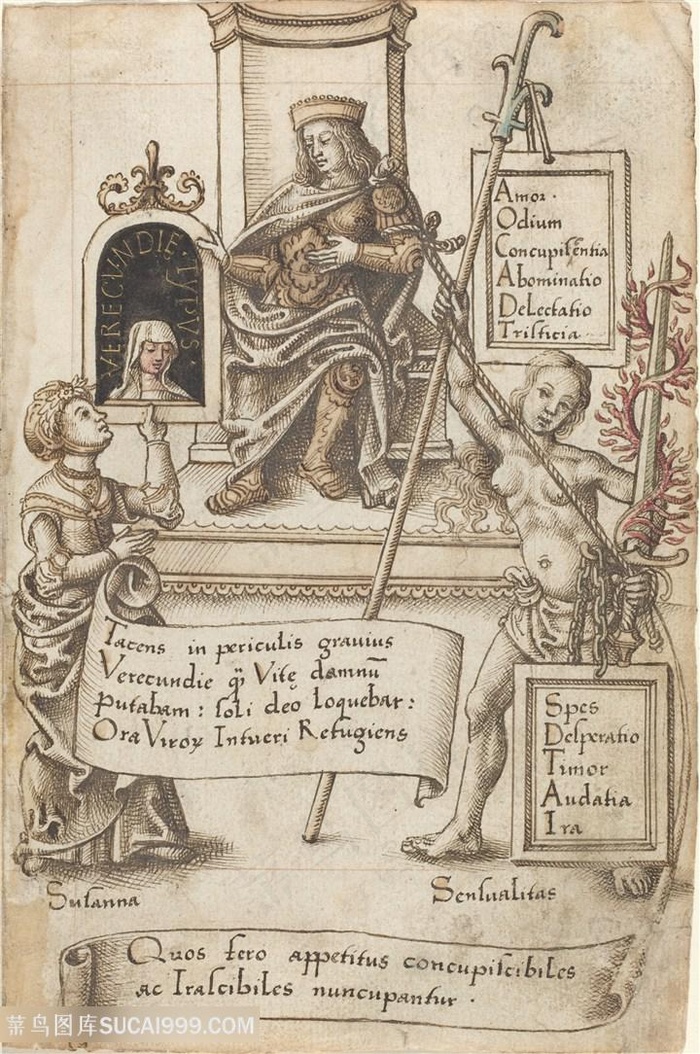 VERECVNDIĘ · TYPVS ·
Amor ·
Odium
Concupiſcentia
Abominatio
Delectatio
Triſticia ·
Tacens in periculis grauius
Verecundie qȝ Vitę damnū
Putabam : ſoli deo loquebar :
Ora Viroꝝ Intueri Refugiens
Spes
Deſperatio
Timor
Audatia
Ira
Suſanna
Senſualitas
Quos fero appetitus concupiſcibiles
ac Iraſcibiles nuncupantur ·
菜鸟图库SUCAI999.COM